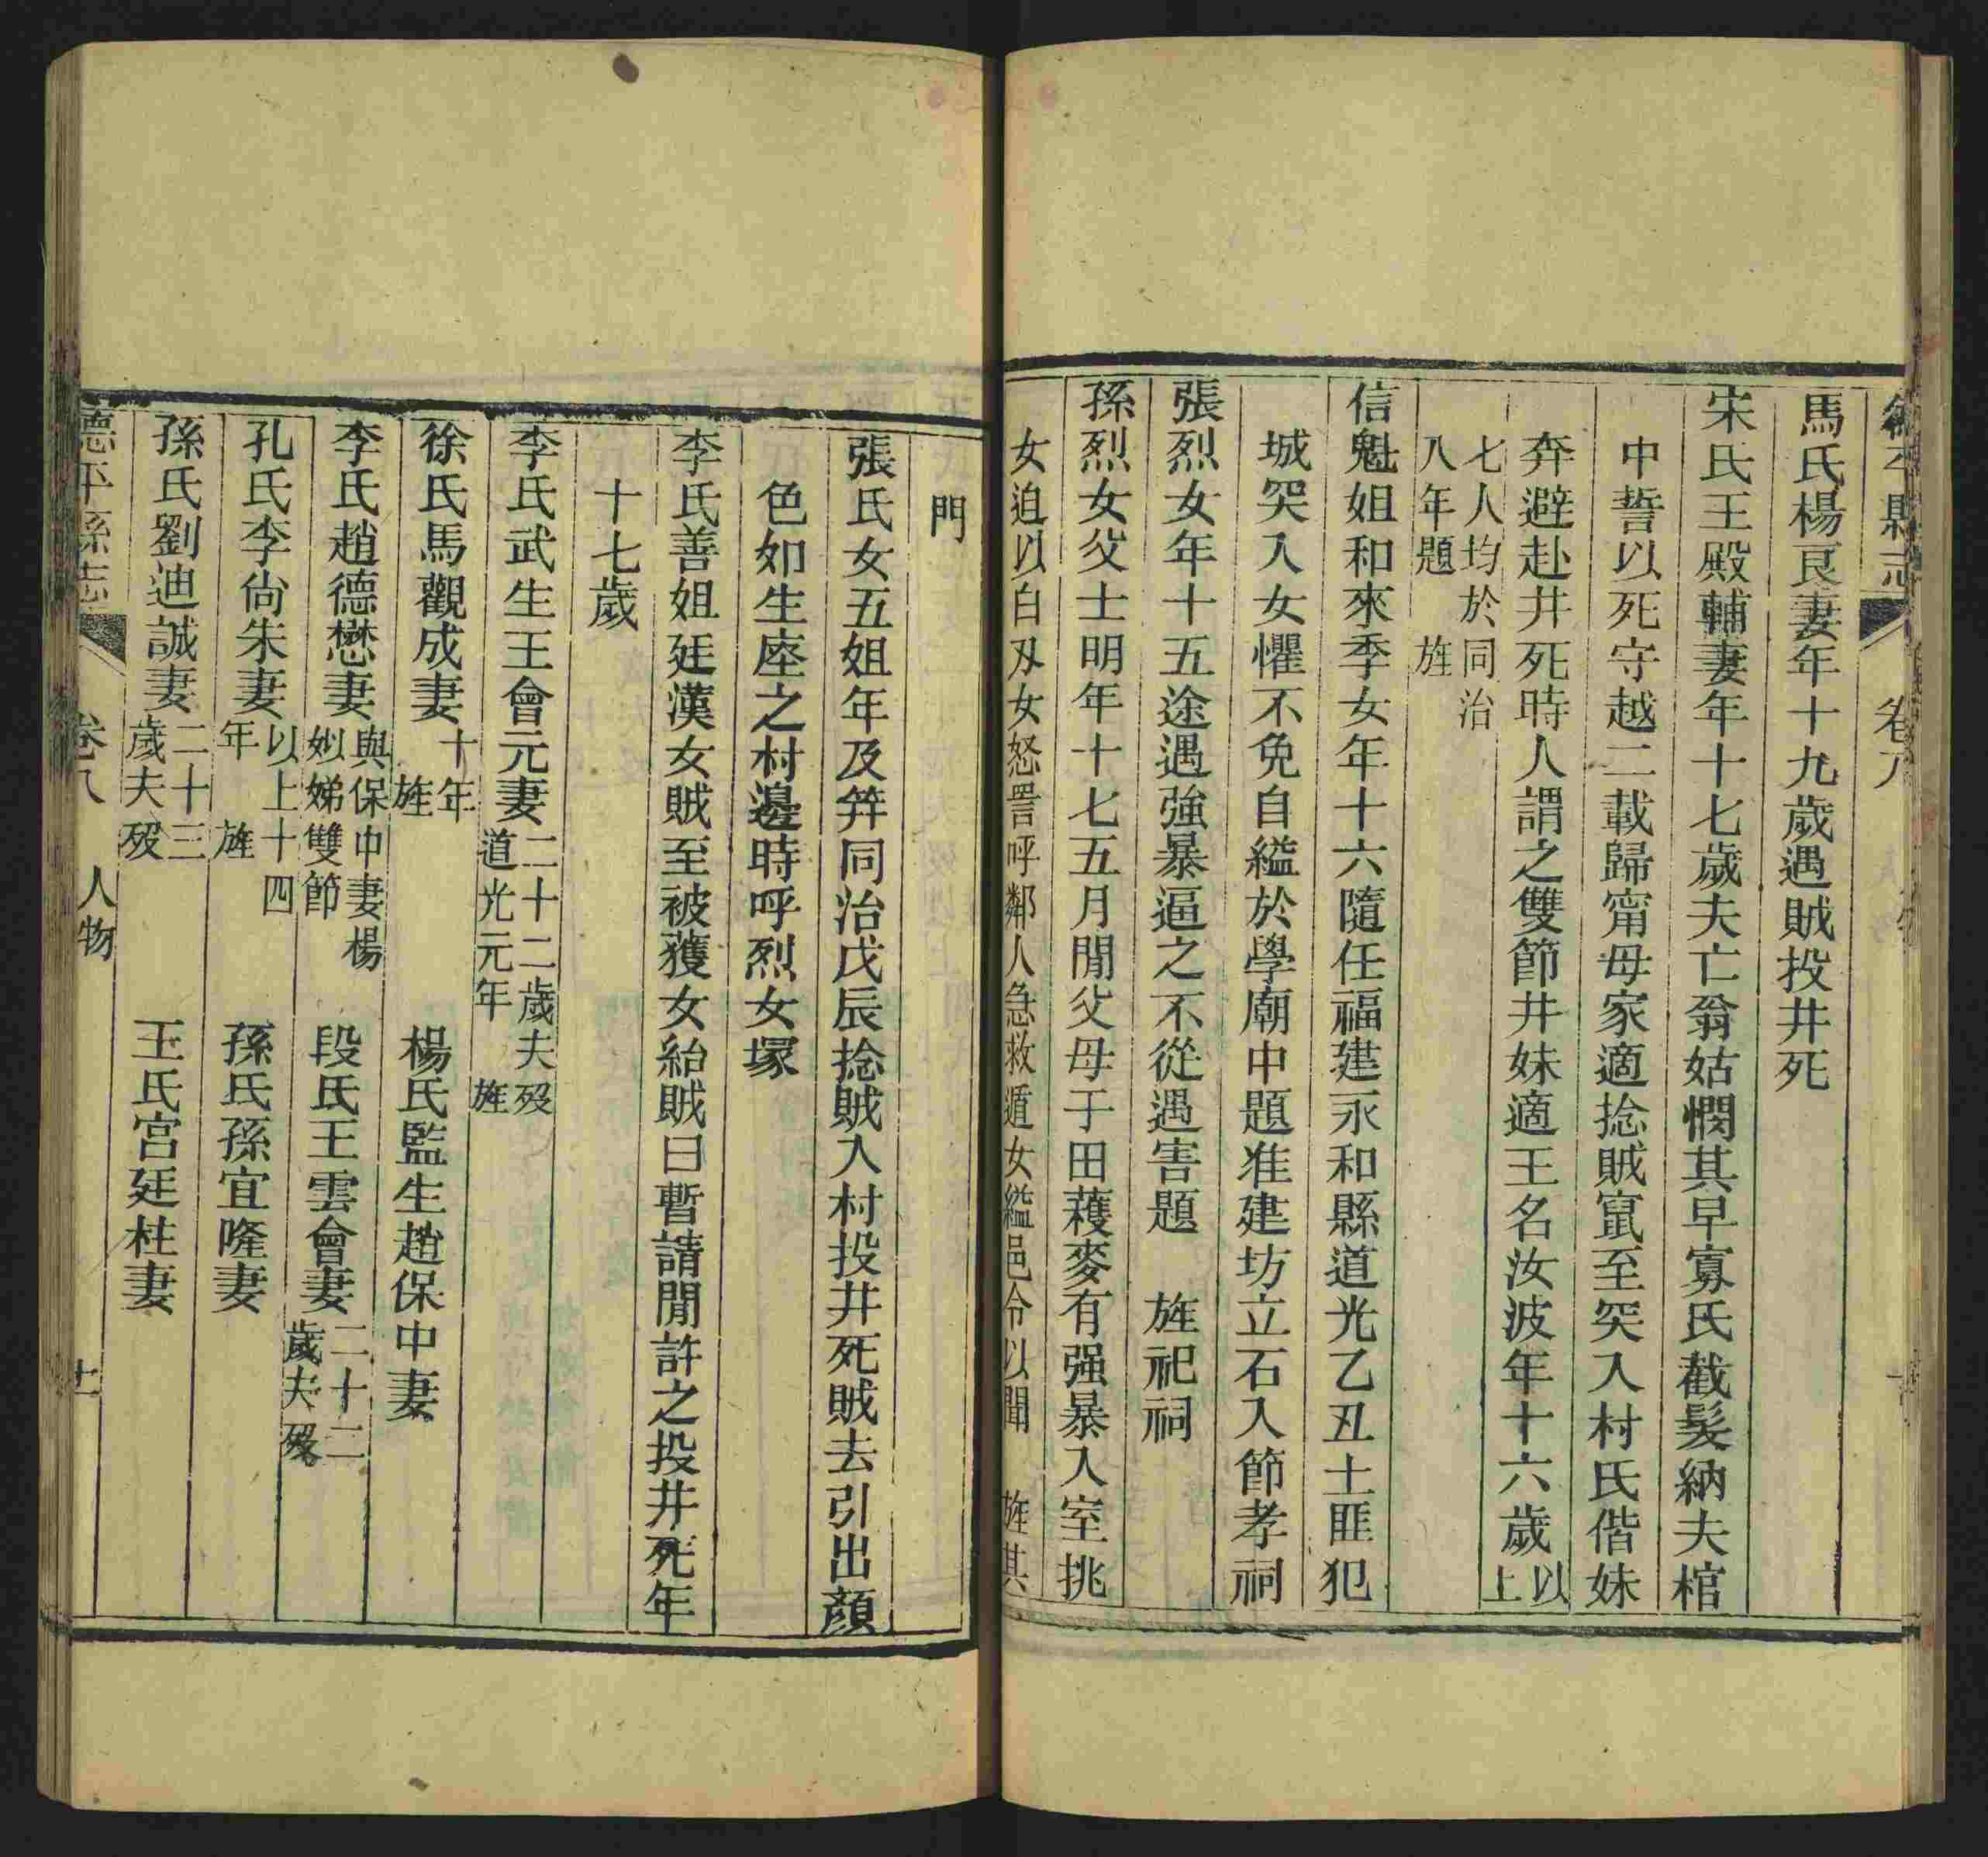 德平縣志 卷八
馬氏楊良妻年十九歲遇賊投井死
宋氏王殿輔妻年十七歲夫亡翁姑憫其早寡氏截髮納夫棺
中誓以死守越二載歸甯母家適捻賊竄至突入村氏偕妹
奔避赴井死時人謂之雙節井妹適王名汝波年十六歲以上
七人均於同治
八年題 旌
信魁姐和來季女年十六隨任福建永和縣道光乙丑土匪犯
城突入女懼不免自縊於學廟中題准建坊立石入節孝祠
張烈女年十五途遇強暴逼之不從遇害題 旌祀祠
孫烈女父士明年十七五月間父母于田穫麥有强暴入室挑
女迫以白刄女怒詈呼鄰人急救遁女縊邑令以聞 旌其
門
張氏女五姐年及笄同治戊辰捻賊入村投井死賊去引出顏
色如生座之村邊時呼烈女塚
李氏善姐廷漢女賊至被獲女紿賊曰暫請閒許之投井死年
十七歲
李氏武生王會元妻二十二歲夫歿道光元年 旌
徐氏馬觀成妻十年旌 楊氏監生趙保中妻
李氏趙德懋妻與保中妻楊妯娣雙節 段氏王雲會妻二十二歲夫歿
孔氏李尙朱妻以上十四年 旌 孫氏孫宜隆妻
孫氏劉迪誠妻二十三歲夫歿 王氏宮廷柱妻
德平縣志 卷八 人物